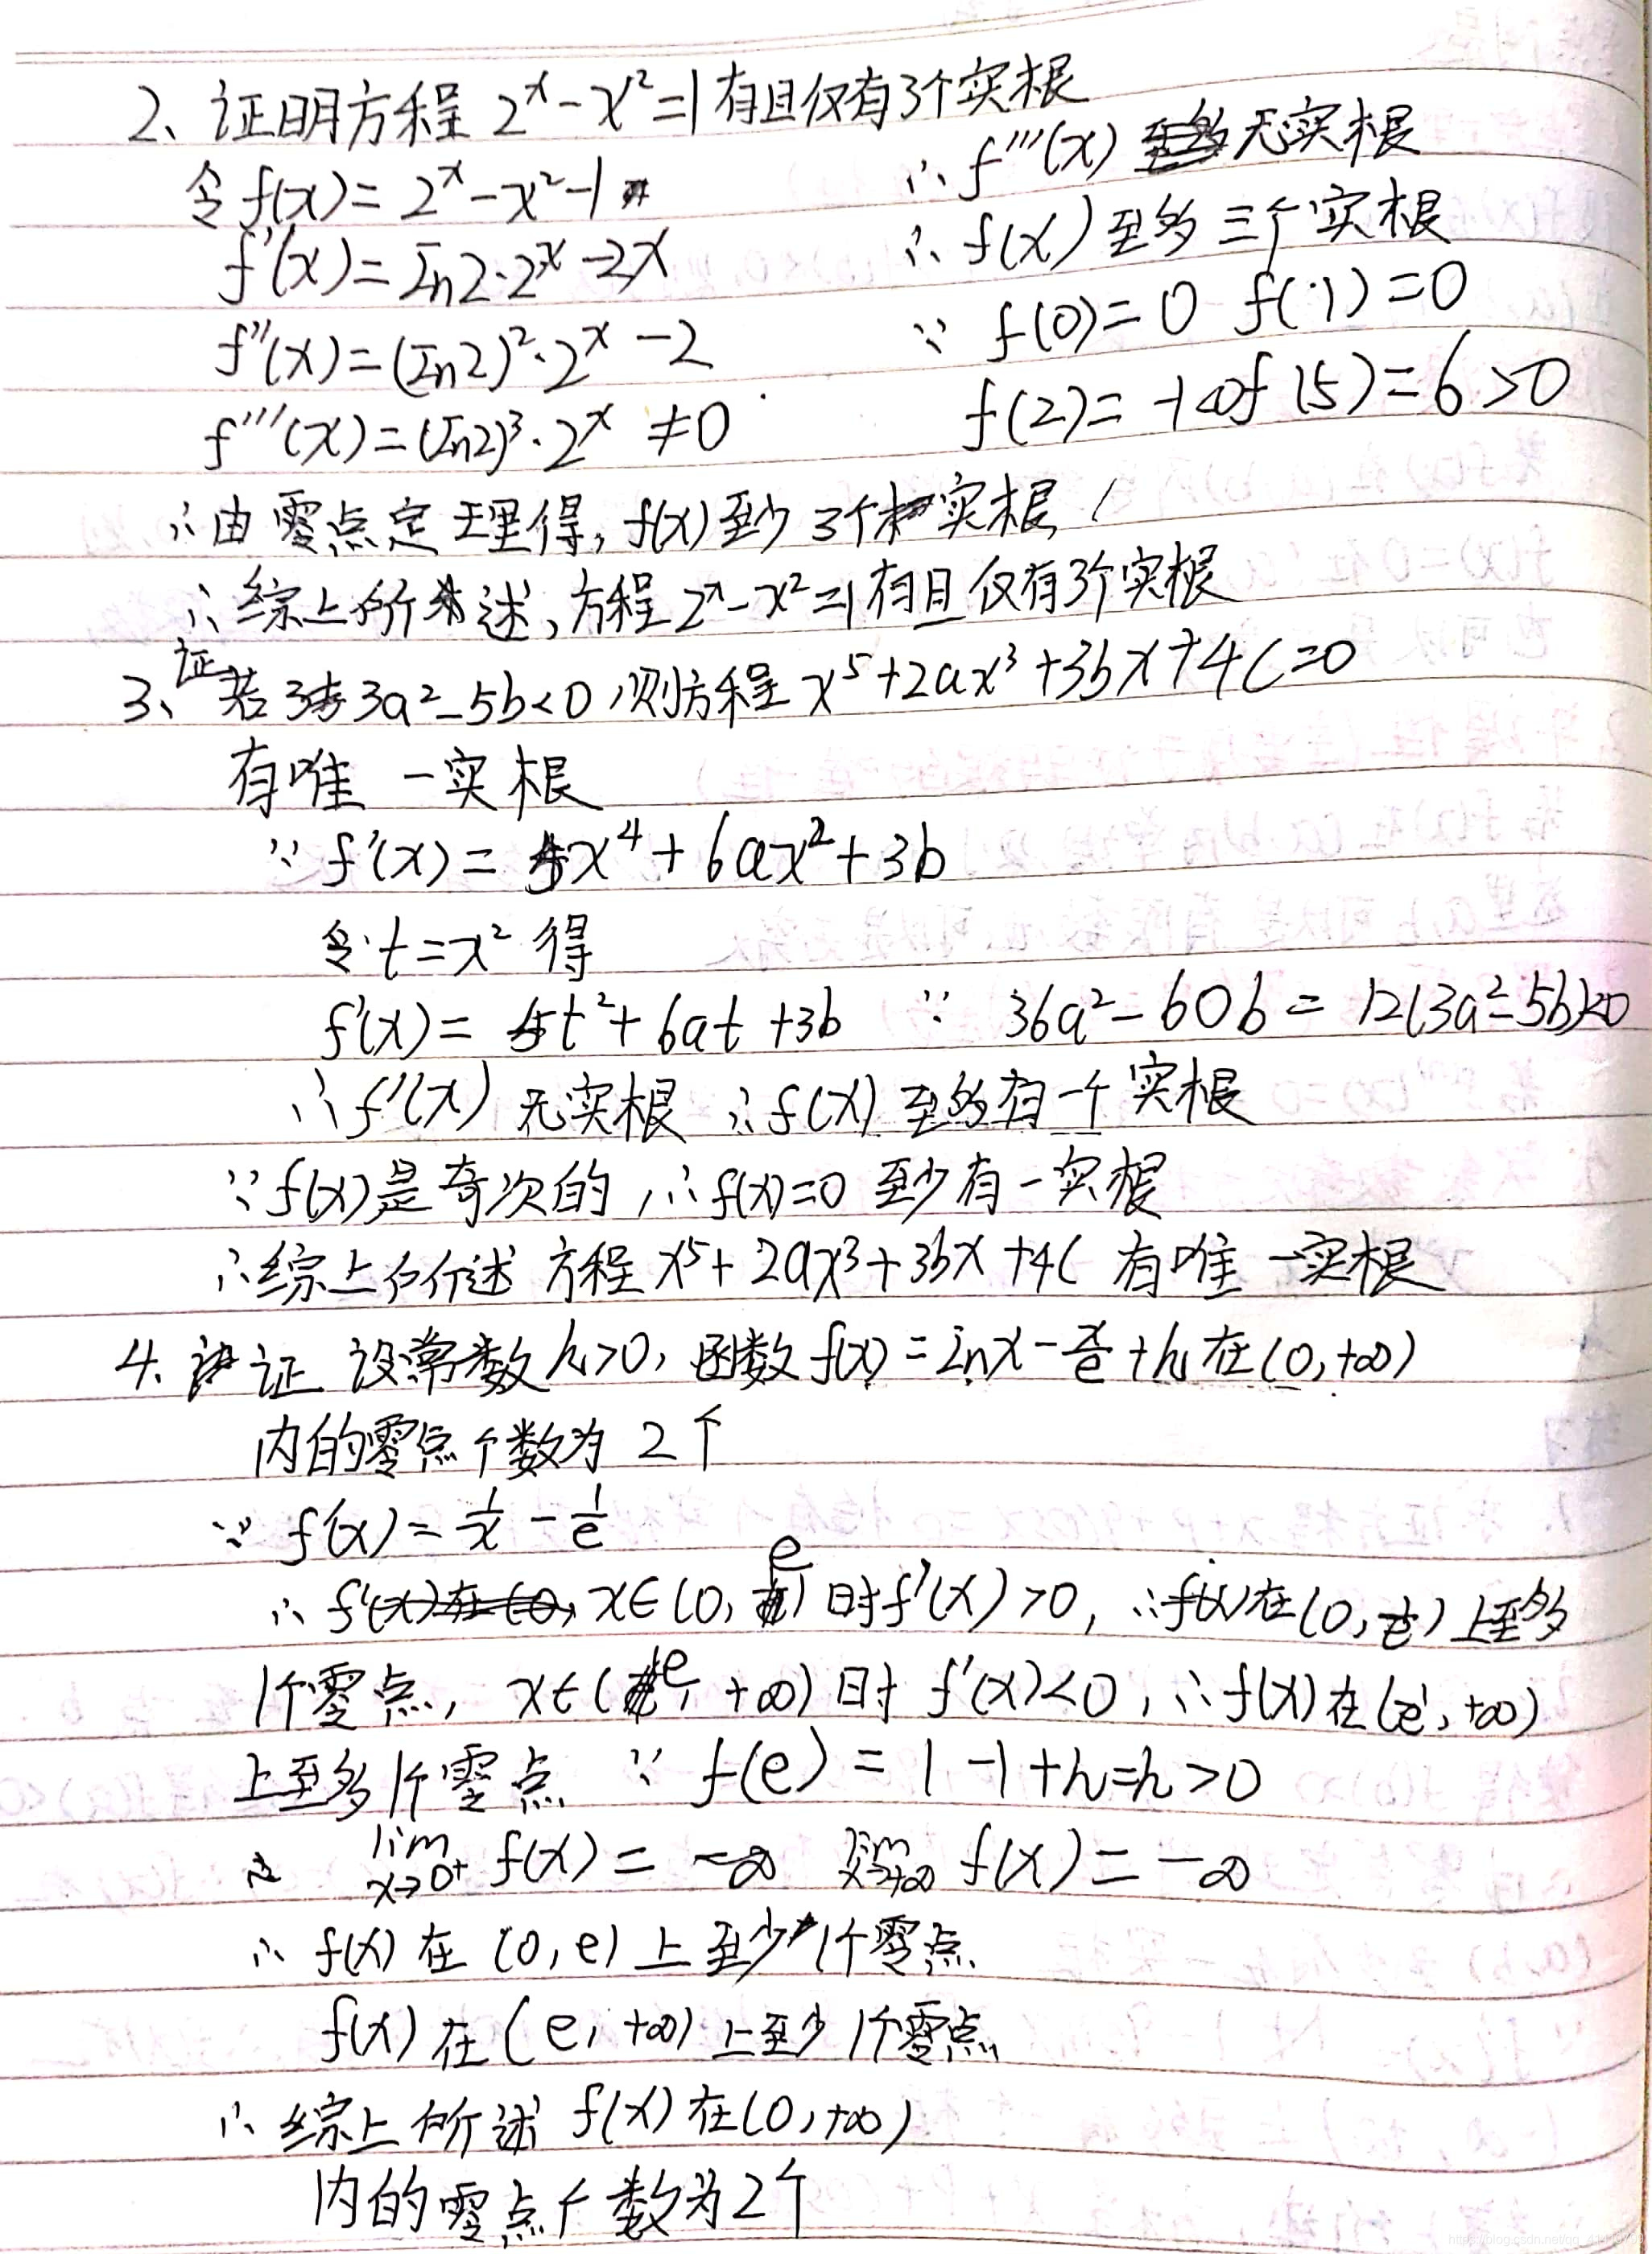 2、证明方程 2^x-x²=1有且仅有3个实根
令f(x)=2^x-x²-1
f'(x)=ln2·2^x-2x
f''(x)=(ln2)²·2^x-2
f'''(x)=(ln2)³·2^x≠0
∴f'''(x)无实根
∴f(x)至多三个实根
∵f(0)=0 f(1)=0
f(2)=-1<0 f(5)=6>0
∴由零点定理得,f(x)至少3个实根
∴综上所述,方程2^x-x²=1有且仅有3个实根
3、证若3a²-5b<0,则方程x⁵+2ax³+3bx+4c=0
有唯一实根
∵f'(x)=5x⁴+6ax²+3b
令t=x²得
f'(x)=5t²+6at+3b ∵36a²-60b=12(3a²-5b)<0
∴f'(x)无实根 ∴f(x)至多有一个实根
∵f(x)是奇次的,∴f(x)=0至少有一实根
∴综上所述 方程x⁵+2ax³+3bx+4c有唯一实根
4.证 设常数k>0,函数f(x)=lnx-x/e+k在(0,+∞)
内的零点个数为2个
∵f'(x)=1/x-1/e
∴x∈(0,e)时f'(x)>0,∴f(x)在(0,e)上至多
1个零点,x∈(e,+∞)时f'(x)<0,∴f(x)在(e,+∞)
上至多1个零点 ∵f(e)=1-1+k=k>0
lim x→0⁺ f(x)=-∞ lim x→+∞ f(x)=-∞
∴f(x)在(0,e)上至少1个零点
f(x)在(e,+∞)上至少1个零点
∴综上所述f(x)在(0,+∞)
内的零点个数为2个